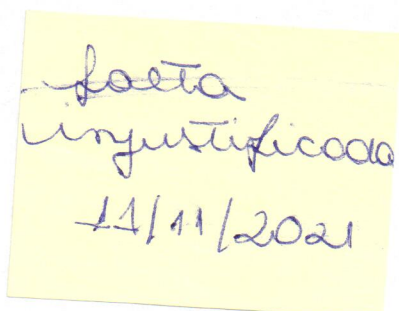 falta
injustificada
11/11/2021